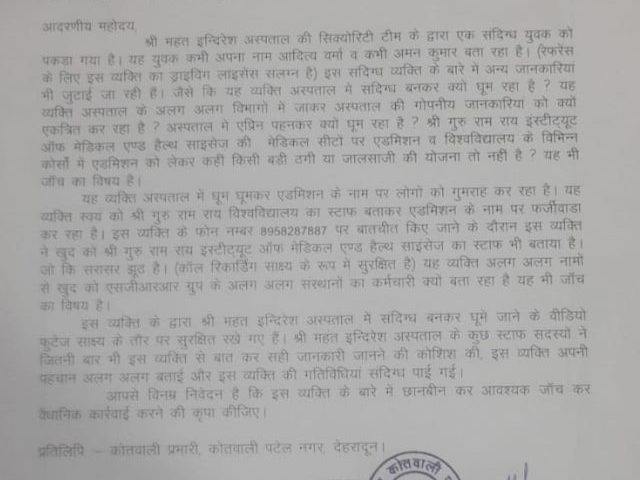 आदरणीय महोदय,
श्री महंत इन्दिरेश अस्पताल की सिक्योरिटी टीम के द्वारा एक संदिग्ध युवक को
पकड़ा गया है। यह युवक कभी अपना नाम आदित्य वर्मा व कभी अमन कुमार बता रहा है। (रेफरेंस
के लिए इस व्यक्ति का ड्राइविंग लाइसेंस सलग्न है) इस संदिग्ध व्यक्ति के बारे में अन्य जानकारियां
भी जुटाई जा रही है। जैसे कि यह व्यक्ति अस्पताल में संदिग्ध बनकर क्यो घूम रहा है ? यह
व्यक्ति अस्पताल के अलग अलग विभागों में जाकर अस्पताल की गोपनीय जानकारियां को क्यों
एकत्रित कर रहा है ? अस्पताल मे एप्रिन पहनकर क्यों घूम रहा है ? श्री गुरु राम राय इंस्टीट्यूट
ऑफ मेडिकल एण्ड हैल्थ साइसेज की मेडिकल सीटों पर एडमिशन व विश्वविद्यालय के विभिन्न
कोर्सों में एडमिशन को लेकर कहीं किसी बड़ी ठगी या जालसाजी की योजना तो नहीं है ? यह भी
जॉच का विषय है।
यह व्यक्ति अस्पताल में घूम घूमकर एडमिशन के नाम पर लोगों को गुमराह कर रहा है। यह
व्यक्ति स्वयं को श्री गुरु राम राय विश्वविद्यालय का स्टाफ बताकर एडमिशन के नाम पर फर्जीवाड़ा
कर रहा है। इस व्यक्ति के फोन नम्बर 8958287887 पर बातचीत किए जाने के दौरान इस व्यक्ति
ने खुद को श्री गुरु राम राय इंस्टीट्यूट ऑफ मेडिकल एण्ड हैल्थ साइंसेज का स्टाफ भी बताया है।
जो कि सरासर झूठ है। (कॉल रिकार्डिंग साक्ष्य के रूप में सुरक्षित है) यह व्यक्ति अलग अलग नामों
से खुद को एसजीआरआर ग्रुप के अलग अलग संस्थानों का कर्मचारी क्यो बता रहा है यह भी जॉच
का विषय है।
इस व्यक्ति के द्वारा श्री महंत इन्दिरेश अस्पताल में संदिग्ध बनकर घूमे जाने के वीडियो
फुटेज साक्ष्य के तौर पर सुरक्षित रखे गए हैं। श्री महंत इन्दिरेश अस्पताल के कुछ स्टाफ सदस्यों ने
जितनी बार भी इस व्यक्ति से बात कर सही जानकारी जानने की कोशिश की, इस व्यक्ति अपनी
पहचान अलग अलग बताई और इस व्यक्ति की गतिविधियां संदिग्ध पाई गई।
आपसे विनम्र निवेदन है कि इस व्यक्ति के बारे में छानबीन कर आवश्यक जॉच कर
वैधानिक कार्रवाई करने की कृपा कीजिए।
प्रतिलिपि – कोतवाली प्रभारी, कोतवाली पटेल नगर, देहरादून।
कोतवाली